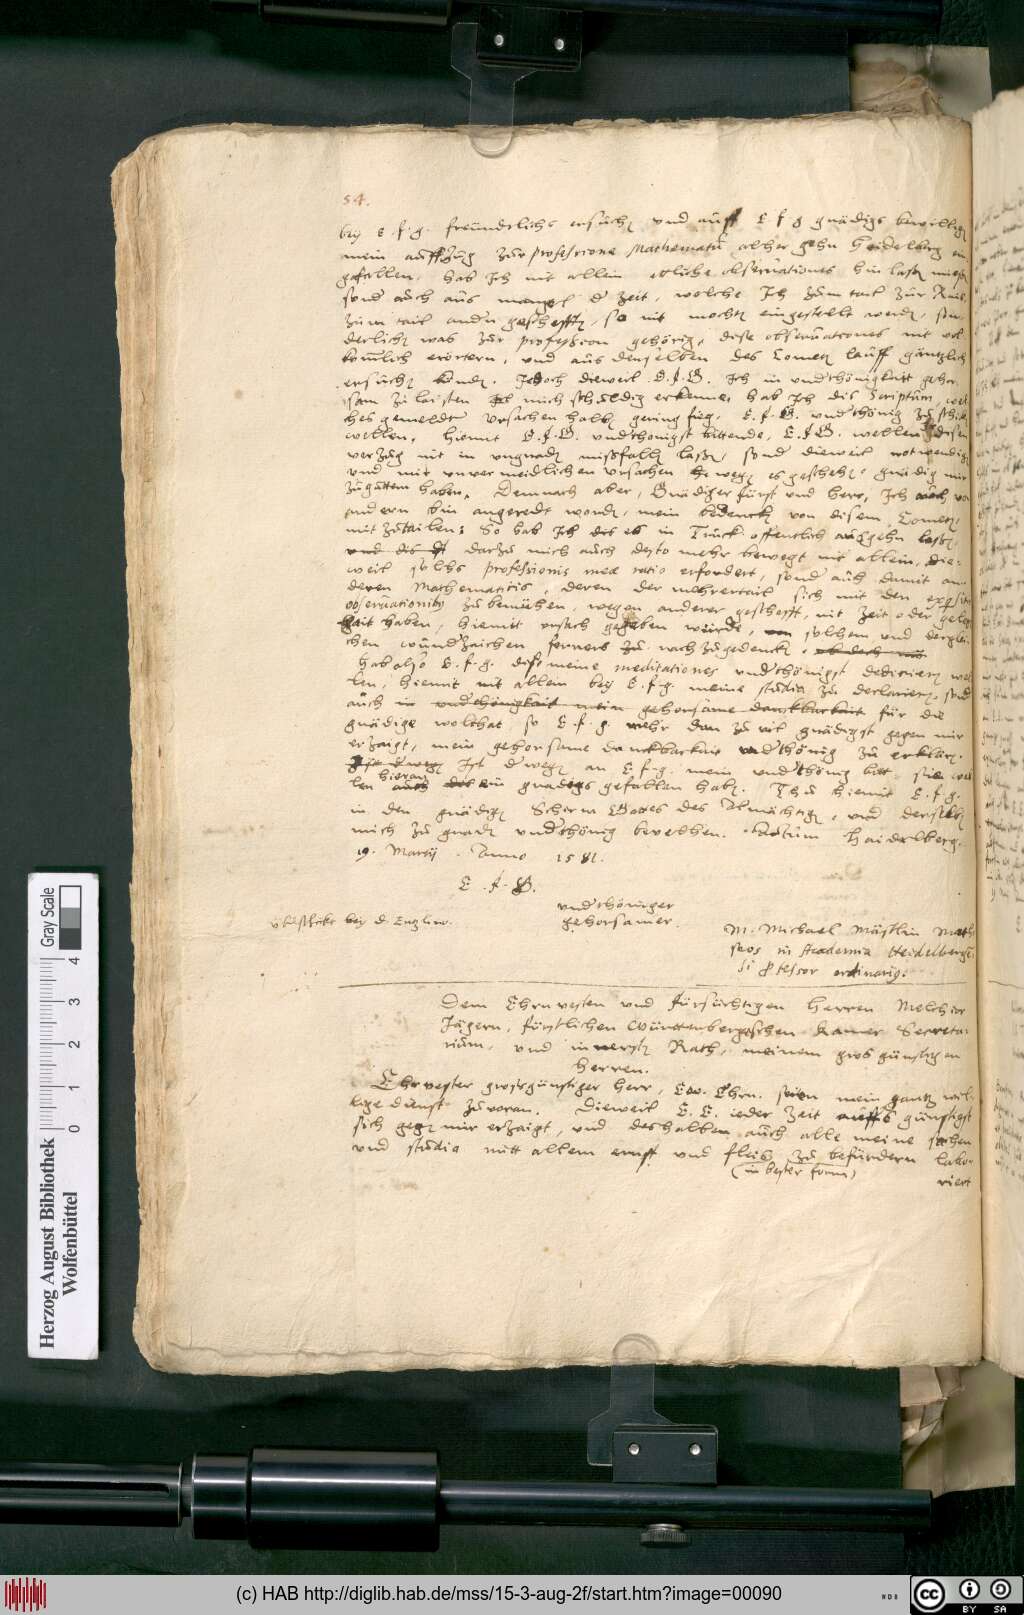 54.
bey E. f. g. freündtlichs ersuchē und auff E f g gnädigs bewilligē
mein auffzug zur professione Mathematū alher gehn Heidelberg ein
gefallen, hab Ich nit allein etliche observationes hin laßē müeßē
sond auch aus mangel d Zeit, welche Ich zum tail zur
zum tail andn geschefftē, so nit mochtē eingestellt werdē, son
derlichē was zur profession gehörig, dise observationes nit vol
komlich erörtern, und aus denselben des Cometē lauff gäntzlich
ersuchē köndē. Jedoch dieweil E. f. G. Ich in undthönigkait gehor
sam zu laisten mich schuldig erkenne, hab Ich dis Scriptum, wel
ches gemeldtr ursachen halbē gering fieg, E. f. G. undthönig zu schickē
wellen, hiemit E. f. G. undthönigst bittende, E. f. G. wellen disen
verzug nit in ungnadē mißfallē laßē, sond dieweil notwendig
und mir unvermeidlichen ursachen es geschehē, gnädig mir
zugüttem haben. Demnach aber, Gnädiger fürst und herr, Ich auch von
andern bin angeredt wordē, mein bedenckē von disem Cometē
mit zutailen: So hab Ich dis es in Truck offentlich außgehn laßē,
und dis darzu mich auch desto mehr bewegt nit allein, die-
weil solchs professionis meæ ratio erfordert, sond auch damit an
deren Mathematicis, deren der mehrertail sich mit den
observationibus zu bemühen, wegen anderer geschefft, nit Zeit oder geleg
hait haben, hiemit ursach gegeben würde, solchem und derglei
chen wundzaichen ferners nachzugedenckē.
hab also E. f. g. dise meine meditationes undthönigst dedicierē wel
len, hiemit nit allein bey E. f. g. meine studia zu declarierē, sond
auch in undthönigkait mein gehorsame danckbarkait für die
gnädige wolthat so E. f. g. mehr dan zu vil gnädigst gegen mir
erzaigt, mein gehorsame danckbarkait undthönig zu erklärē.
Ist dwegē an E. f. g. mein undthönig bitt, sie wel
hieran
len auch ein gnadigs gefallen habē. Thu hiemit E. f. g.
in den gnädigē Schirm Gottes des Almächtigē, und derselbē
mich zu gnadē undthönig bevelhen. Datum Haidelberg.
19. Martij. Anno 1581.
E. f. G.
undthöniger
gehorsamer.
bey d. Englin.
M. Michael Mästlin Mathe
seos in Academia Heidelbergē
si Pfessor ordinariꝰ.
Dem Ehrnvesten und fürsichtigen Herren Melchior
Jägern, fürstlichen Württembergischen Kamer Secreta
rium, und innerstē Rath, meinem gros günstigen
Herren.
Ehrvester grosgünstiger Herr, Ew. Ehrn. seien mein gantz wil
lige dienst zuvoran. Dieweil E. E. ieder Zeit auffs günstigst
sich gegē mir erzaigt, und deshalben auch alle meine sachen
und studia mitt allem ernst und fleis zu befürdern labo-
(in bester form) riert
Herzog August Bibliothek
Wolfenbüttel
0 1 2 3 4
Gray Scale
(c) HAB http://diglib.hab.de/mss/15-3-aug-2f/start.htm?image=00090
WDB
cc BY SA